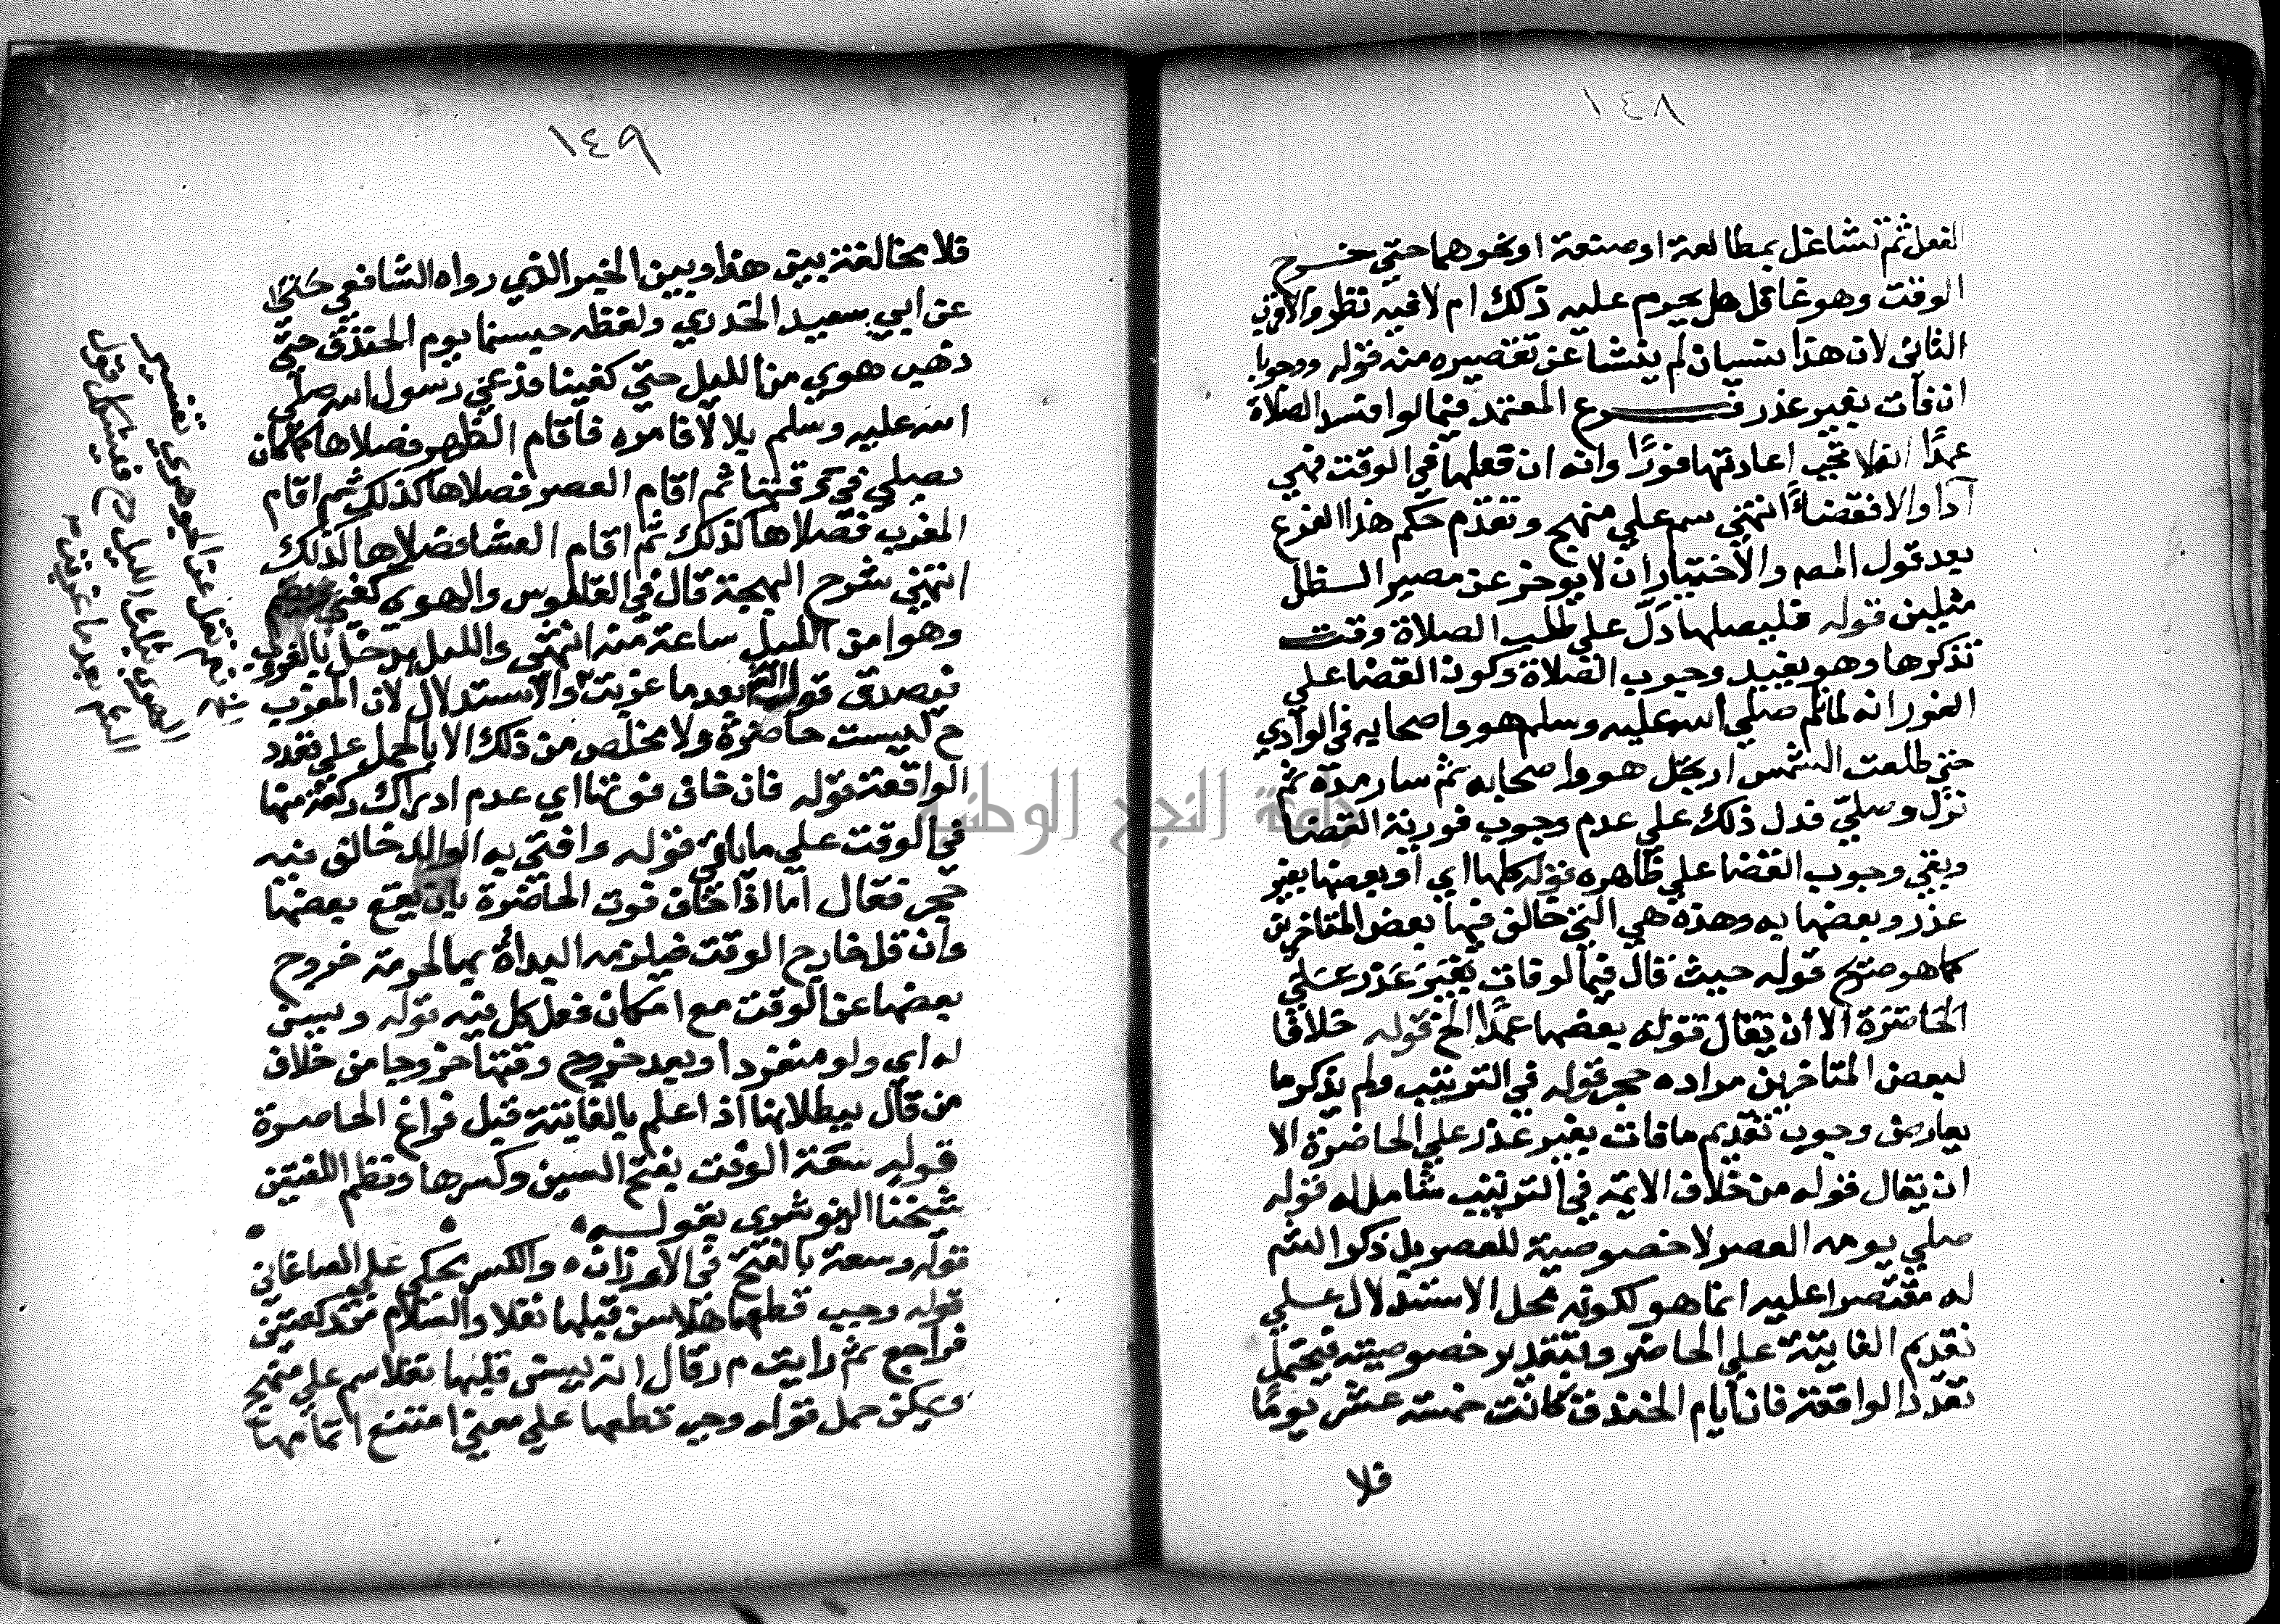 ١٤٨
الفعل ثم تشاغل بمطالعة او صنعة او نحوهما حتي خرج
الوقت وهو غافل هل يحرم عليه ذلك ام لا فيه نظر والاقرب
الثاني لان هذا نسيان لم ينشا عن تقصيره منه قوله ووجوبا
ان فات بغير عذر فرع المعتمد فيما لو افسد الصلاة
عمدا انه لا تجب اعادتها فورا وانه ان فعلها في الوقت فهي
آدا والا فقضاءً انتهي سم علي منهج وتقدم حكم هذا الفرع
بعد قول المص والاختيار ان لا يوخر عن مصير الظل
مثلين قوله فليصلها دلّ علي طلب الصلاة وقت
تذكرها وهو يفيد وجوب الصلاة وكون القضا علي
الفور انه لما نام صلي الله عليه وسلم هو واصحابه في الوادي
حتي طلعت الشمس ارتحل هو واصحابه ثم سار مدة ثم
نزل وصلي فدل ذلك علي عدم وجوب فورية القضا
وبقي وجوب القضا علي ظاهره قوله كلها اي او بعضها بغير
عذر وبعضها به وهذه هي التي خالف فيها بعض المتاخرين
كما هو صريح قوله حيث قال فيما لو فات بغير عذر علي
الحاضرة الا ان يقال قوله بعضها عمدا الخ قوله خلافا
لبعض المتاخرين مراده حجر قوله في الترتيب ولم يذكر ما
يعارض وجوب تقديم ما فات بغير عذر علي الحاضرة الا
ان يقال قوله من خلاف الايمة في الترتيب شامل له قوله
صلي يومه العصر لا خصوصية للعصر بل ذكر الشم
له مقتصرا عليه انما هو لكونه محل الاستدلال علي
تقديم الفايتة علي الحاضر وبتقدير خصوصيته فيحتمل
تعدد الواقعة فان ايام الخندق كانت خمسة عشر يوما
فلا
١٤٩
فلا مخالفة بين هذا وبين الخبر الذي رواه الشافعي
عن ابي سعيد الخدري ولفظه حبسنا يوم الخندق حتي
ذهب هوي من الليل حتي كفينا فدعي رسول الله صلي
الله عليه وسلم بلالا فامره فاقام الظهر فصلاها كما كان
يصلي في وقتها ثم اقام العصر فصلاها كذلك ثم اقام
المغرب فصلاها كذلك ثم اقام العشا فصلاها كذلك
انتهي شرح البهجة قال في القاموس والهوي كغني
وهوا من الليل ساعة منه انتهي والليل يدخل بالغروب
فيصدق قوله بعد ما غربت والاستدلال لان المغرب
ح ليست حاضرة ولا مخلص من ذلك الا بالحمل علي تعدد
الواقعة قوله فان خاف فوتها اي عدم ادراك ركعة منها
في الوقت علي ما ياتي قوله وافتي به الوالد خالف فيه
حجر فقال اما اذا خاف فوت الحاضرة بان يقع بعضها
وان قل خارج الوقت فيلزمه البداة بها لحرمة خروج
بعضها عن الوقت مع امكان فعل كل فيه قوله ويسن
له اي ولو منفردا وبعد خروج وقتها خروجا من خلاف
من قال ببطلانها اذا علم بالفايتة قبل فراغ الحاضرة
قوله سعة الوقت بفتح السين وكسرها ونظم اللغتين
شيخنا الشنوشوي بقوله
قوله وسعة بالفتح في الاوزان والكسر يحكي علي الصاغاني
قوله وجب قطعها هلا سن قبلها نفلا والسلام من ركعتين
فراجع ثم رايت م ر قال انه ليس قلبها نفلا سم علي منهج
ويمكن حمل قوله وجب قطعها علي معني امتنع اتمامها